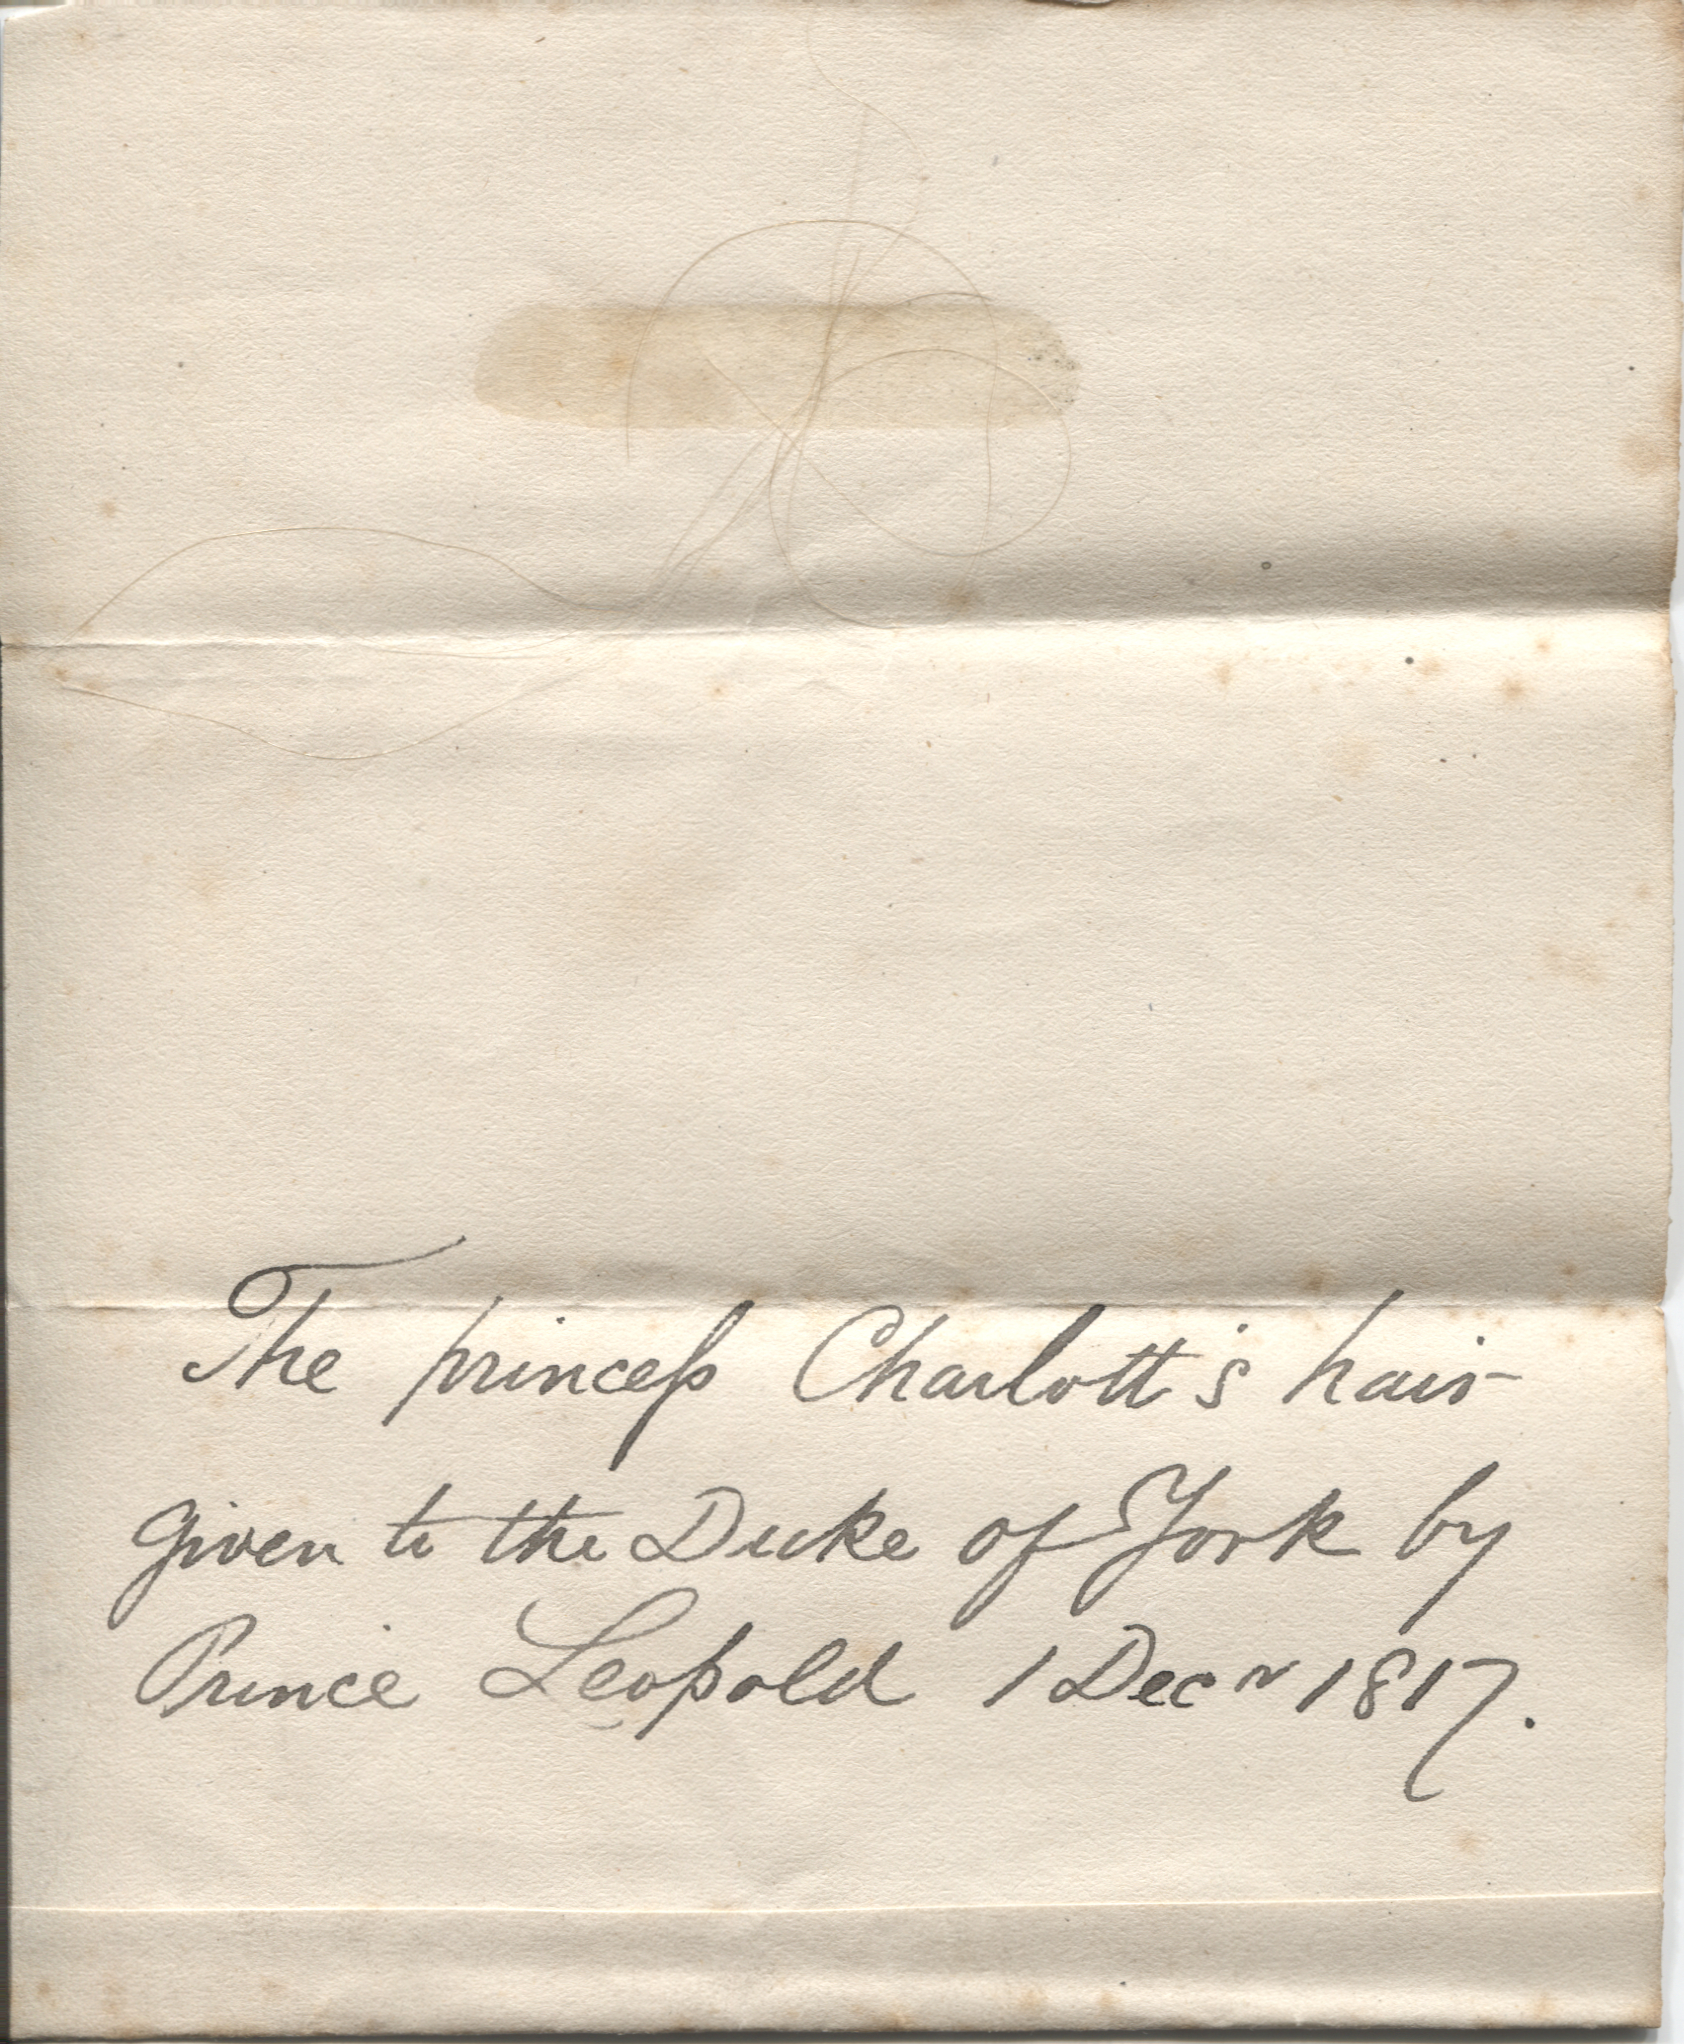 The princeſs Charlott's hair
given to the Duke of York by
Prince Leopold 1 Decr 1817.